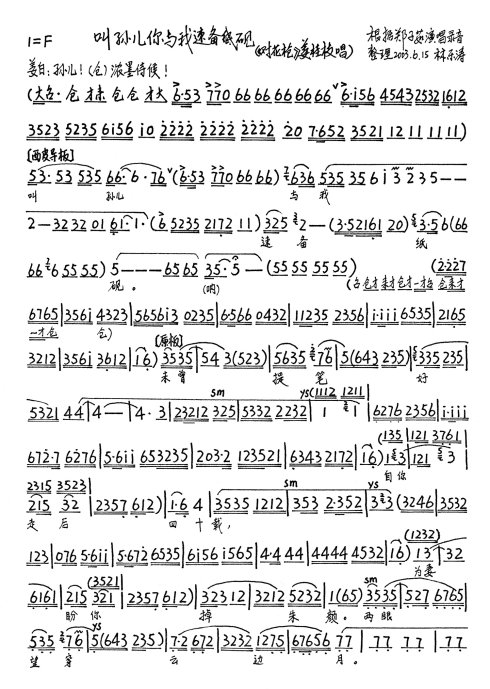 1=F 叫孙儿你与我速备纸砚(《对花枪》姜桂枝唱) 根据郑子茹演唱录音
姜白:孙儿!(仓)浓墨侍候! 整理2003.6.15
6·53 770 66 66 66 66 66 6·i56 4543 2532 1612
3523 5235 6i56 i0 2222 2222 2222 2222 20 7·652 3521 12 11 11 11)
[西皮导板]
53·53 535 66·6·76 (6·53 770 66 66) 636 535 35 6 i 3 2 35 — —
叫 孙儿 与 我
2 — 32 32 01 61·1· (6 5235 2172 11) 325 2 — (3·52161 20) 3·5 6(66
速 备 纸
66 6 55 55) 5 — — — 65 65 35·5 — (55 55 55 55) (2·227
砚。 (哟)
6765 | 356i 4323 | 5656i3 0235 | 6·566 0432 | 11235 2356 | i·iii 6535 | 2165
一才仓 仓)
[原板]
3212 | 356i 3612 | 16) 3535 | 54 3(523) | 5635 76 | 5(643 235) | 335 235 |
未曾 提 笔 好
sm ys(1112 1211
5321 44 | 4 — | 4·3 | 23212 325 | 5332 2232 | 1 1 | 6276 2356 | i·iii
(135 121 3761
672·7 6276 | 5·6ii 653235 | 203·2 123521 | 6343 2172 | 16) 13 | 121 3
自你
2315 3523) sm ys
215 32 | 2357 612) | 1·6 4 | 3535 1212 | 353 2·352 | 3 3 (3246 | 3532
走后 四 十载,
(1232)
123 | 076 5·6ii | 5·672 6535 | 6i56 i565 | 4·4 44 | 4444 4532 | 16) 13 | 32
为妻
(3521) sm
6161 | 215 321 | 2357 612) | 32312 | 3212 5232 | 1(65) 3535 | 527 6765 |
盼你 掉 朱颜。 两眼
ys
535 76 | 5(643 235) | 7·2 672 | 3232 1275 | 67656 77 | 77 77 | 77
望穿 云 边 月。